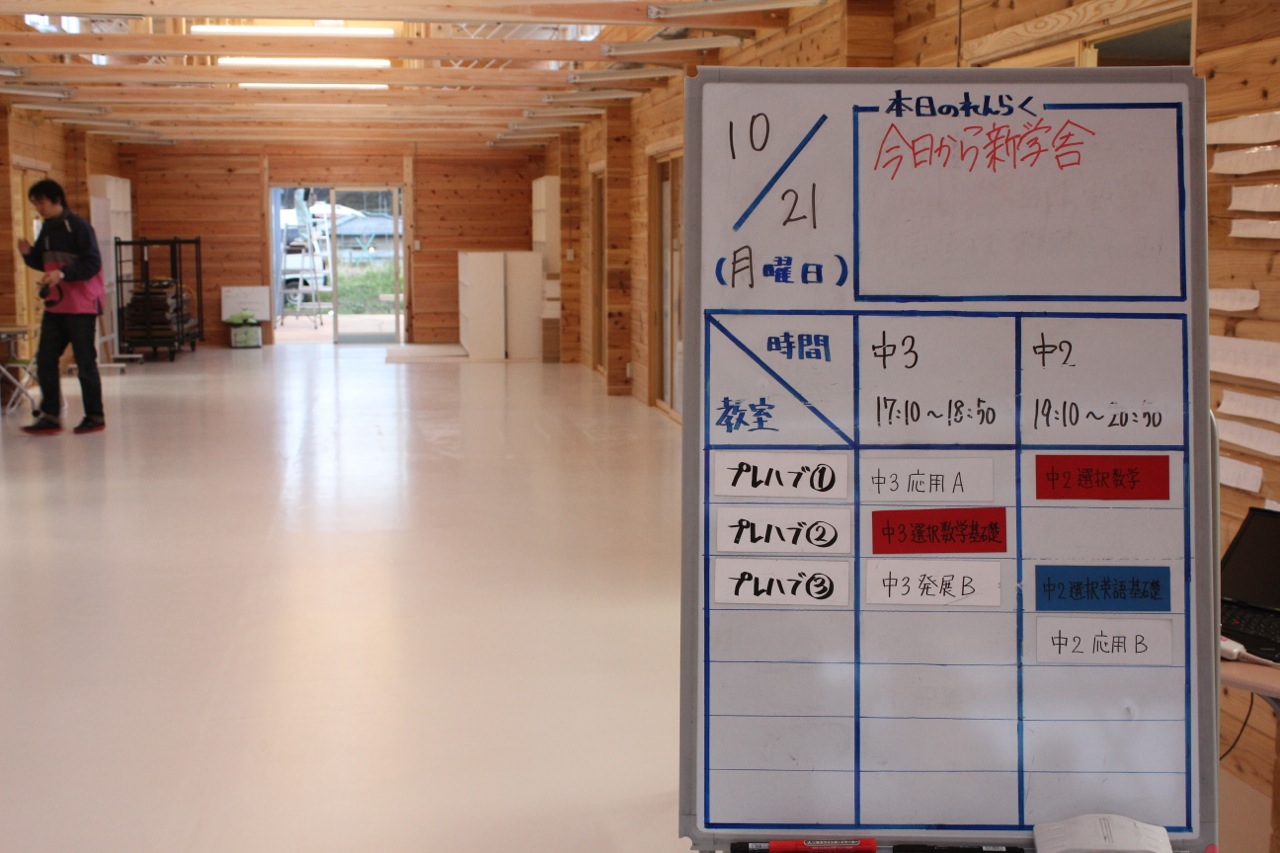 10/21
(月曜日)
本日のれんらく
今日から新学舎
時間
教室
中3
17:10〜18:50
中2
19:10〜20:50
プレハブ①
中3応用A
中2選択数学
プレハブ②
中3選択数学基礎
プレハブ③
中3発展B
中2選択英語基礎
中2応用B